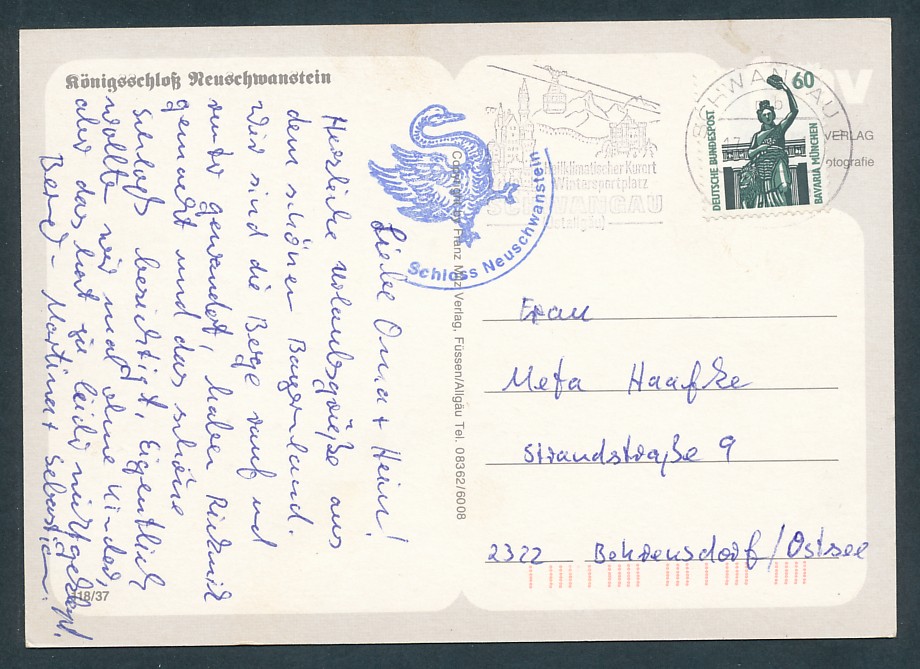 Königsschloß Neuschwanstein
Liebe Oma + Hein!
Herzliche Urlaubsgrüße aus
dem schönen Bayernland.
Wir sind die Berge rauf und
runter gewandert, haben Picknick
gemacht und das schöne
Schloß besichtigt. Eigentlich
wollten wir mal ohne Kinder,
aber das hat ja leider nicht geklappt.
Bernd - Martina + Sebastian.
118/37
Schloss Neuschwanstein
Copyright by Franz Milz Verlag, Füssen/Allgäu Tel. 08362/6008
Heilklimatischer Kurort
Wintersportplatz
SCHWANGAU
SCHWANGAU
60
DEUTSCHE BUNDESPOST
BAVARIA MÜNCHEN
VERLAG
Frau
Meta Haafke
Strandstraße 9
2322 Behrensdorf/Ostsee